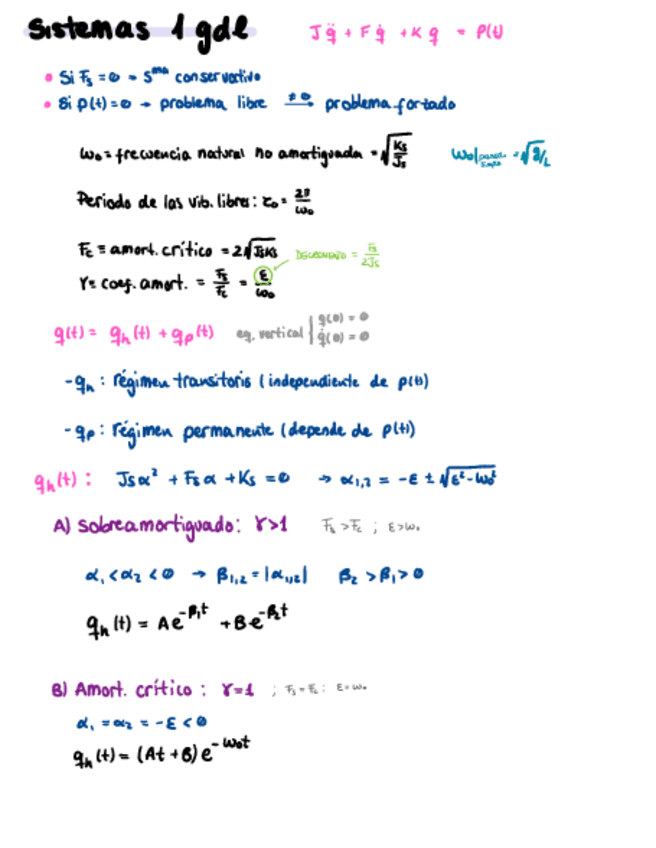 Sistemas 1 gdl J q̈ + F q̇ + K q = P(t)
• Si Fs = 0 → Sma conservativo
• Si p(t) = 0 → problema libre ≠0 → problema forzado
ω₀ = frecuencia natural no amortiguada = √(Ks/Js) ω₀|pend. simple = √(g/L)
Periodo de las vib. libres: τ₀ = 2π/ω₀
Fc ≡ amort. crítico = 2√(JsKs) DECREMENTO = Fs/2Js
γ = coef. amort. = Fs/Fc = ε/ω₀
q(t) = qh(t) + qp(t) eq. vertical { q(0) = 0
q̇(0) = 0
- qh : régimen transitorio (independiente de p(t))
- qp : régimen permanente (depende de p(t))
qh(t) : Jsα² + Fsα + Ks = 0 → α₁,₂ = -ε ± √(ε² - ω₀²)
A) Sobreamortiguado: γ>1 Fs > Fc ; ε>ω₀
α₁ < α₂ < 0 → β₁,₂ = |α₁,₂| β₂ > β₁ > 0
qh(t) = Ae^(-β₁t) + Be^(-β₂t)
B) Amort. crítico : γ=1 ; Fs = Fc ; ε=ω₀
α₁ = α₂ = -ε < 0
qh(t) = (At + B) e^(-ω₀t)